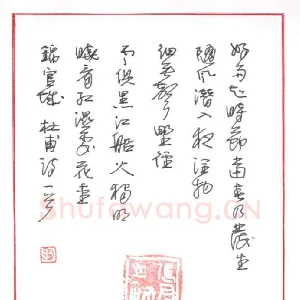 好雨知時節當春乃發生
隨風潛入夜潤物
細無聲野徑雲
俱黑江船火獨明
曉看紅濕處花重
錦官城 杜甫詩一首
Shufawang.CN